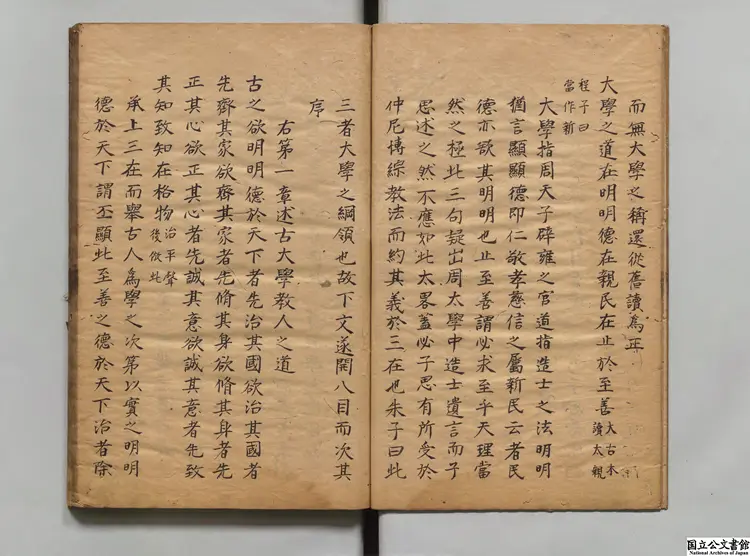 而無大學之稱還從舊讀為正
大學之道在明明德在親民在止於至善大古本讀太親
程子曰當作新
大學指周天子辟雍之官道指造士之法明明
猶言顯顯德即仁敬孝慈信之屬新民云者民
德亦欲其明明也止至善謂必求至乎天理當
然之極此三句疑出周太學中造士遺言而子
思述之然不應如此太畧蓋必子思有所受於
仲尼博綜教法而約其義於三在也朱子曰此
三者大學之綱領也故下文遂開八目而次其
序
右第一章述古大學教人之道
古之欲明明德於天下者先治其國欲治其國者
先齊其家欲齊其家者先脩其身欲脩其身者先
正其心欲正其心者先誠其意欲誠其意者先致
其知致知在格物治平聲後倣此
承上三在而舉古人為學之次第以實之明明
德於天下謂丕顯此至善之德於天下治者除
国立公文書館
National Archives of Japan